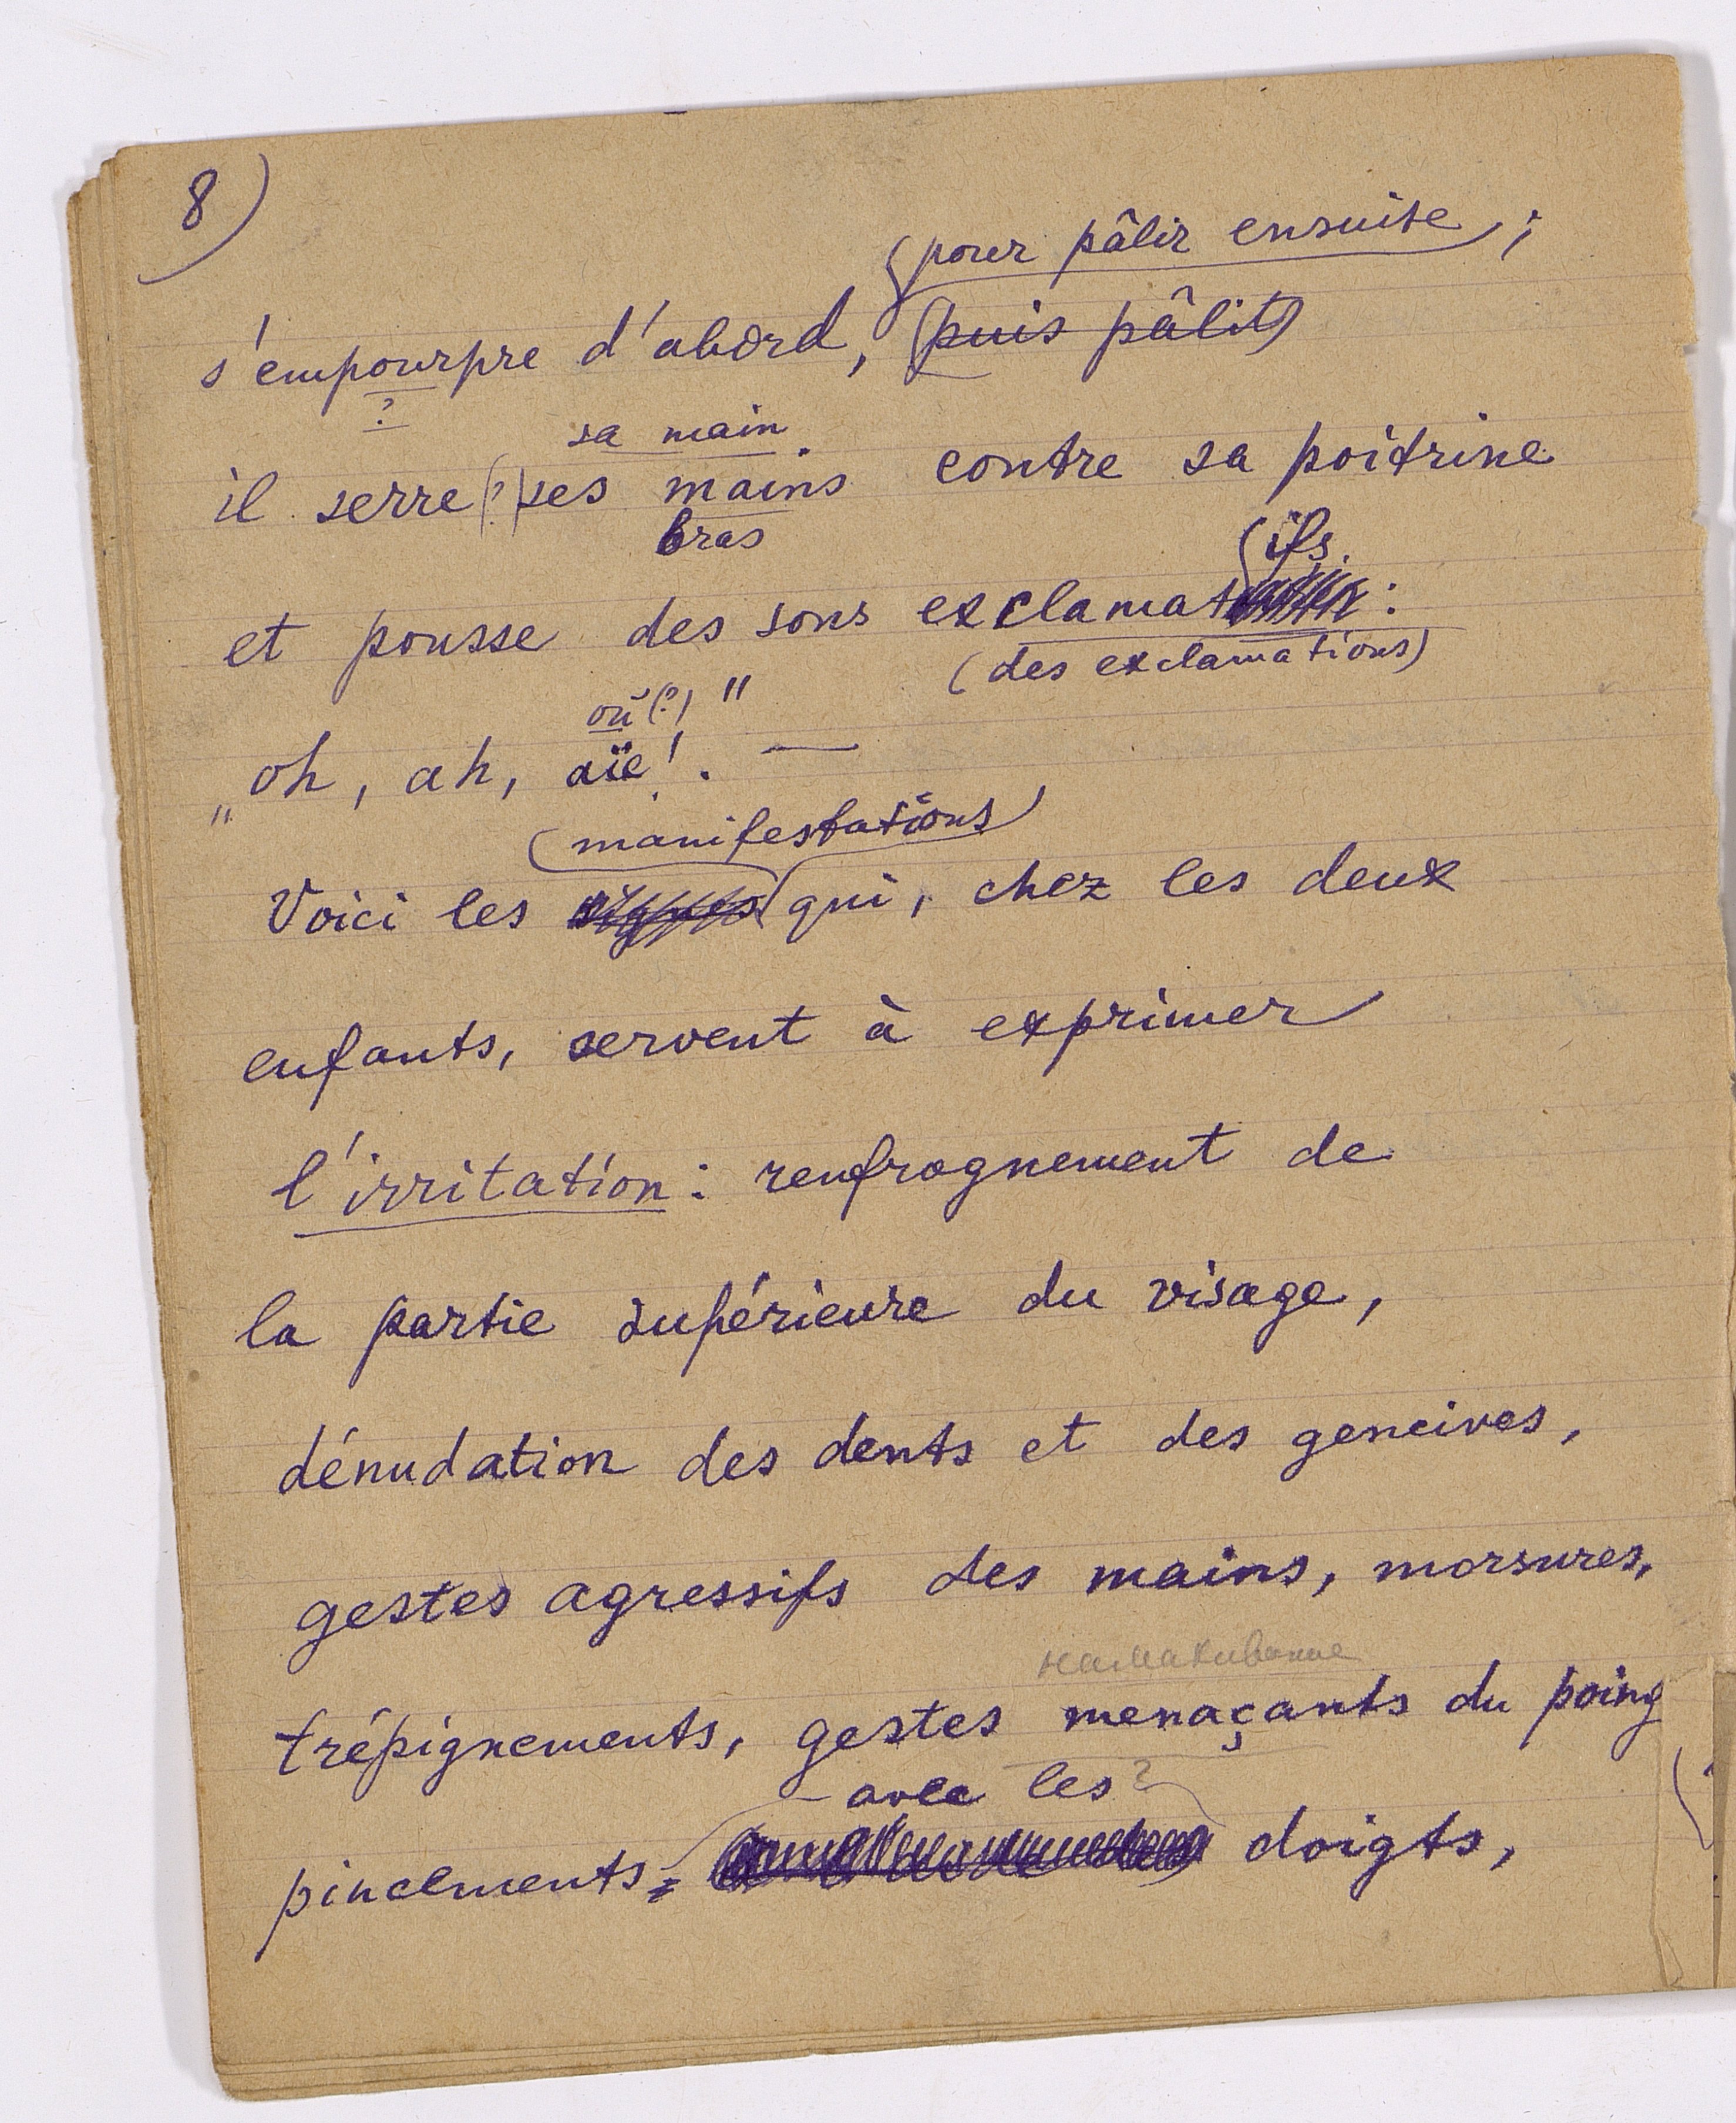 8)
(pour pâlir ensuite);
s'empourpre d'abord, (puis pâlit)
?
sa main
il serre (?) ses mains contre sa poitrine
bras
(ifs
et pousse des sons exclamat :
(des exclamations)
où (?) "
„oh, ah, aïe! . —
(manifestations)
Voici les signes qui, chez les deux
enfants, servent à exprimer
l'irritation : renfrognement de
la partie supérieure du visage,
dénudation des dents et des gencives,
gestes agressifs des mains, morsures,
trépignements, gestes menaçants du poing
avec les ?
pincements, doigts,